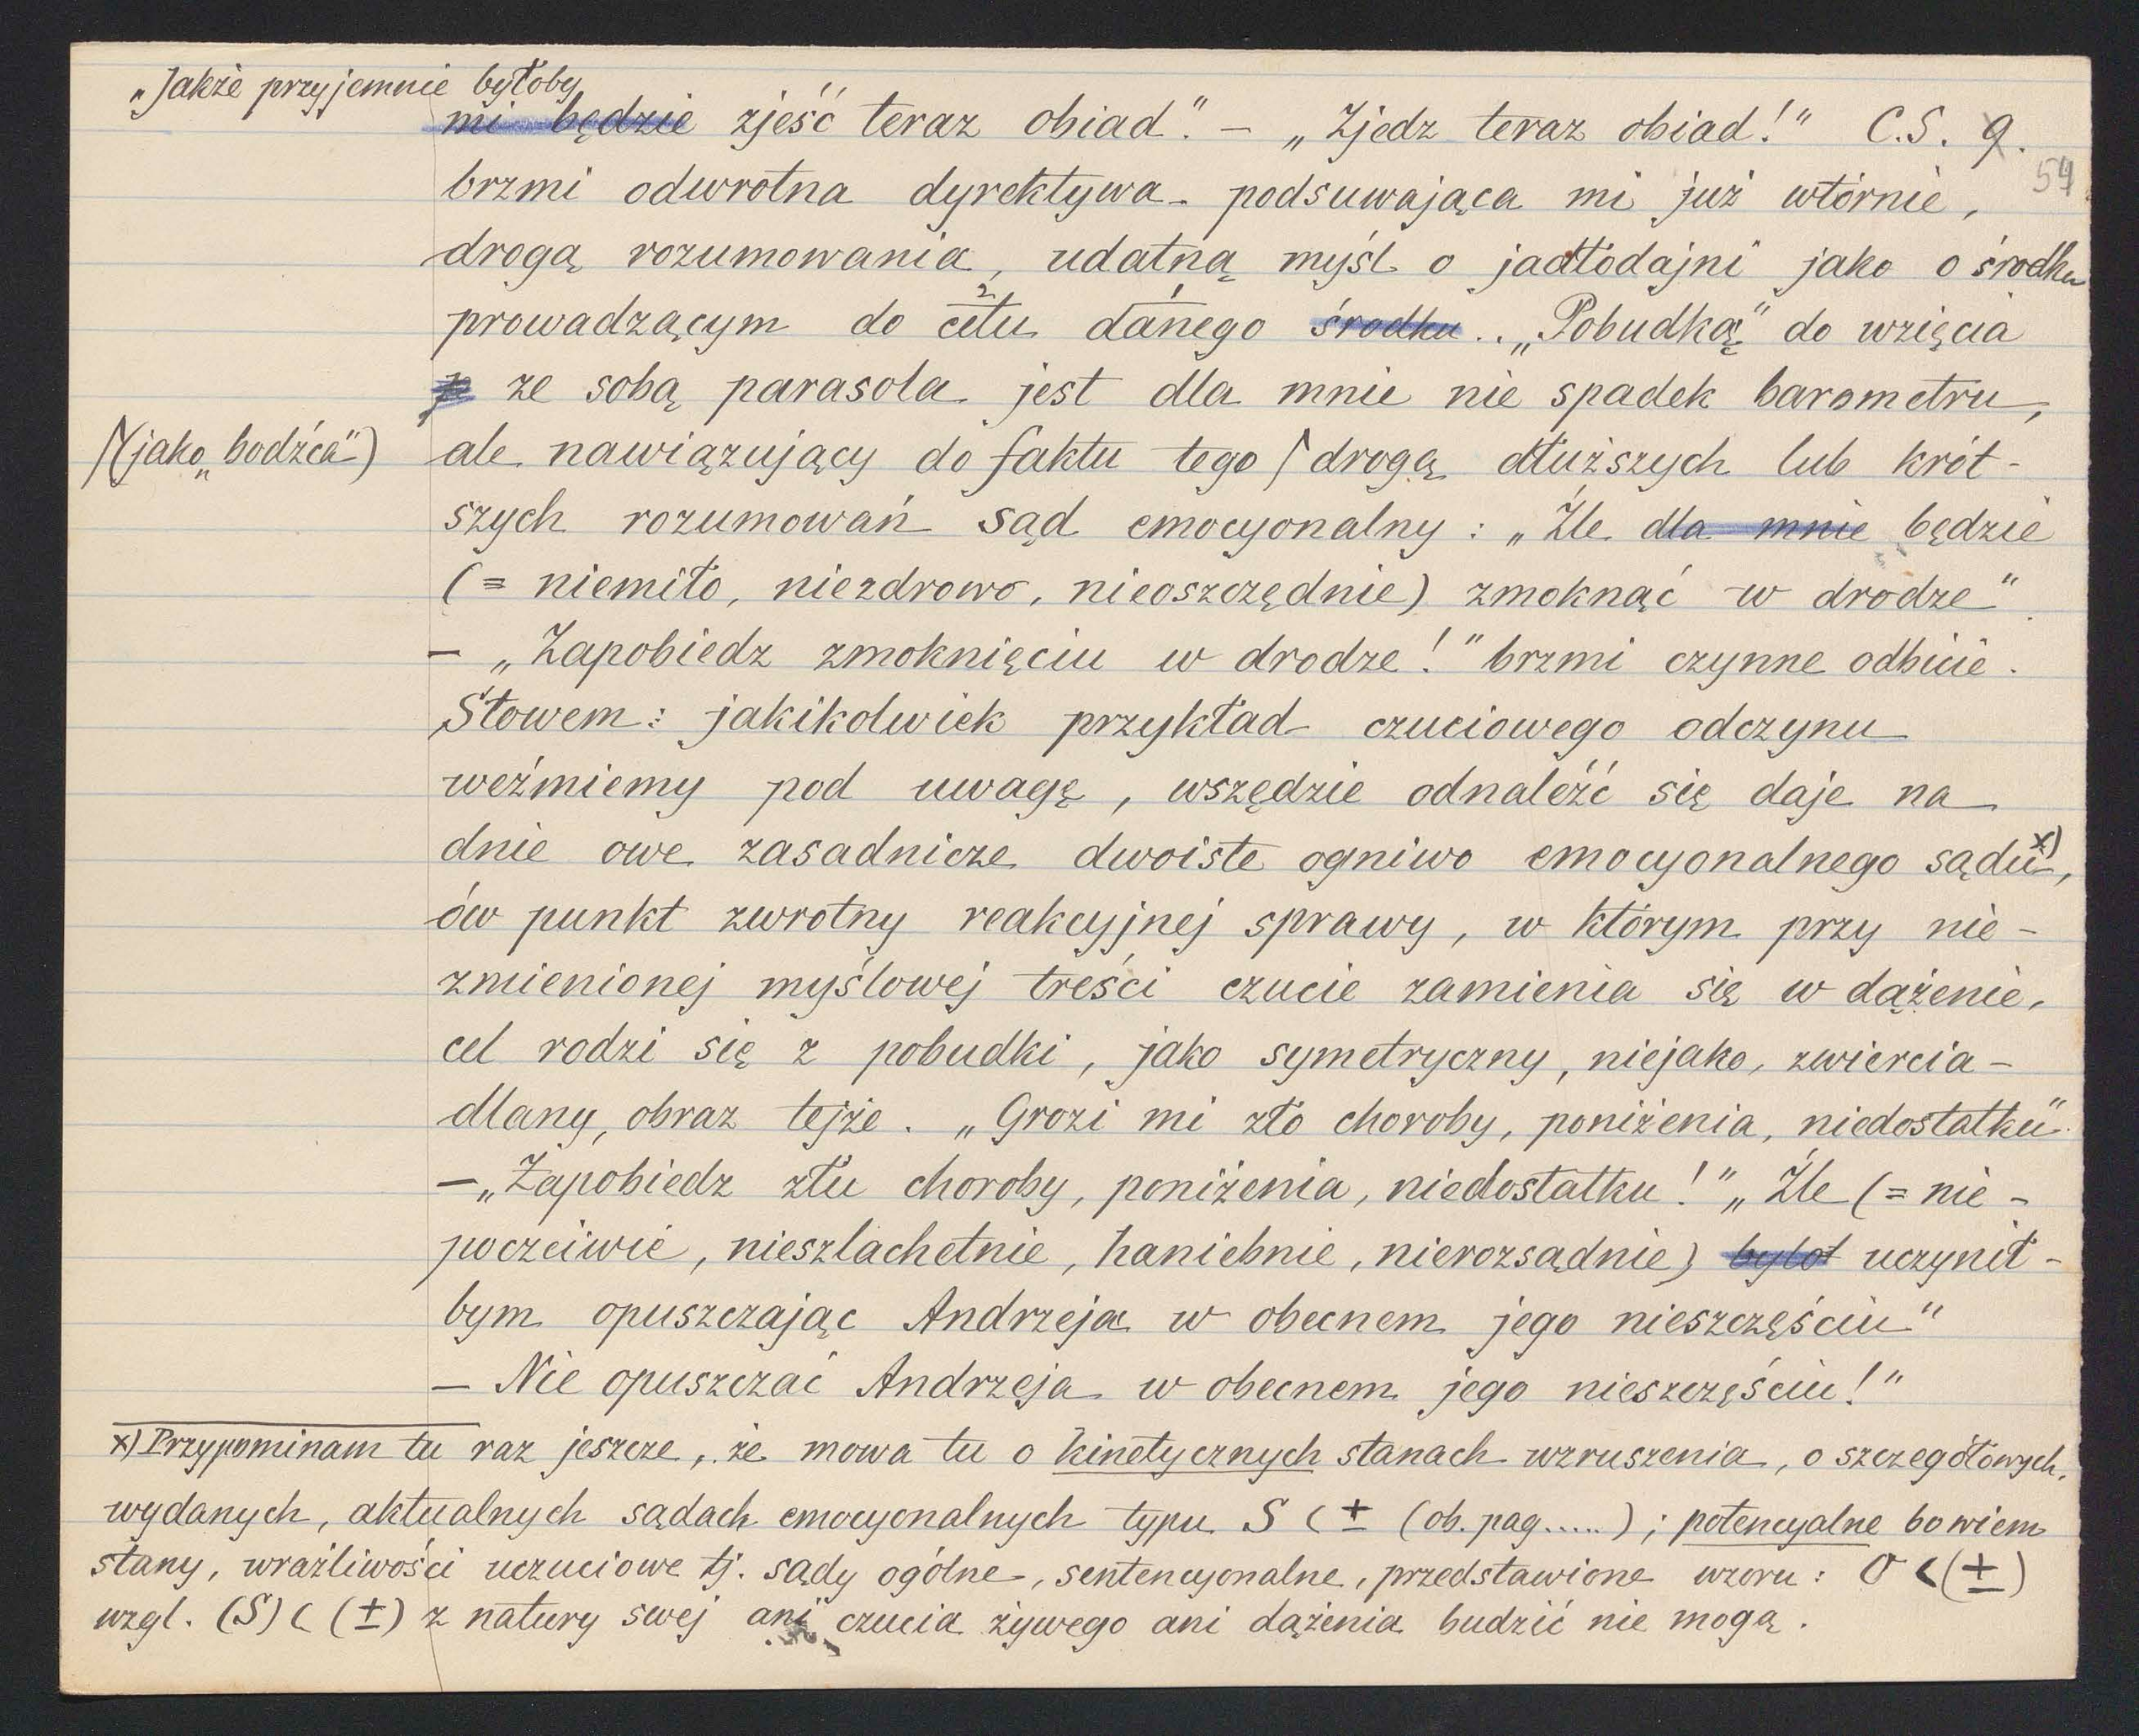 „Jakże przyjemnie byłoby
mi będzie zjeść teraz obiad". – „Zjedz teraz obiad!" C.S. 9.
54
brzmi odwrotna dyrektywa podsuwająca mi już wtórnie,
drogą rozumowania, udatną myśl o jadłodajni jako o środku
prowadzącym do celu danego środku.. „Pobudką" do wzięcia
2 1
p ze sobą parasola jest dla mnie nie spadek barometru,
ale nawiązujący do faktu tego ⌈ drogą dłuższych lub krót-
⌈(jako „bodźca")
szych rozumowań sąd emocyonalny: „Źle dla mnie będzie
(= niemiło, niezdrowo, nieoszczędnie) zmoknąć w drodze".
– „Zapobiedz zmoknięciu w drodze!" brzmi czynne odbicie.
Słowem: jakikolwiek przykład czuciowego odczynu
weźmiemy pod uwagę, wszędzie odnaleźć się daje na
dnie owe zasadnicze dwoiste ogniwo emocyonalnego sądu x),
ów punkt zwrotny reakcyjnej sprawy, w którym przy nie-
zmienionej myślowej treści czucie zamienia się w dążenie,
cel rodzi się z pobudki, jako symetryczny, niejako, zwiercia-
dlany, obraz tejże. „Grozi mi zło choroby, poniżenia, niedostatku"
– „Zapobiedz złu choroby, poniżenia, niedostatku!" „Źle (= nie-
poczciwie, nieszlachetnie, haniebnie, nierozsądnie) byłot uczynił-
bym opuszczając Andrzeja w obecnem jego nieszczęściu"
– Nie opuszczać Andrzeja w obecnem jego nieszczęściu!"
x) Przypominam tu raz jeszcze, że mowa tu o kinetycznych stanach wzruszenia, o szczegółowych,
wydanych, aktualnych sądach emocyonalnych typu S < ± (ob. pag.....); potencyalne bowiem
stany, wrażliwości uczuciowe tj. sądy ogólne, sentencyonalne, przedstawione wzoru: O < (±)
wzgl. (S) < (±) z natury swej ani czucia żywego ani dążenia budzić nie mogą.